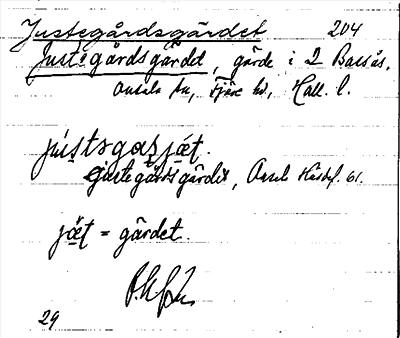 Justegårdsgärdet 204
Justegårdsgärdet, gärde i 2 Barsås.
Onsala sn, Fjäre hd, Hall. l.
jústsgaʂjæt.
Justegårdsgärdet,
jæ̆t = gärdet.
29